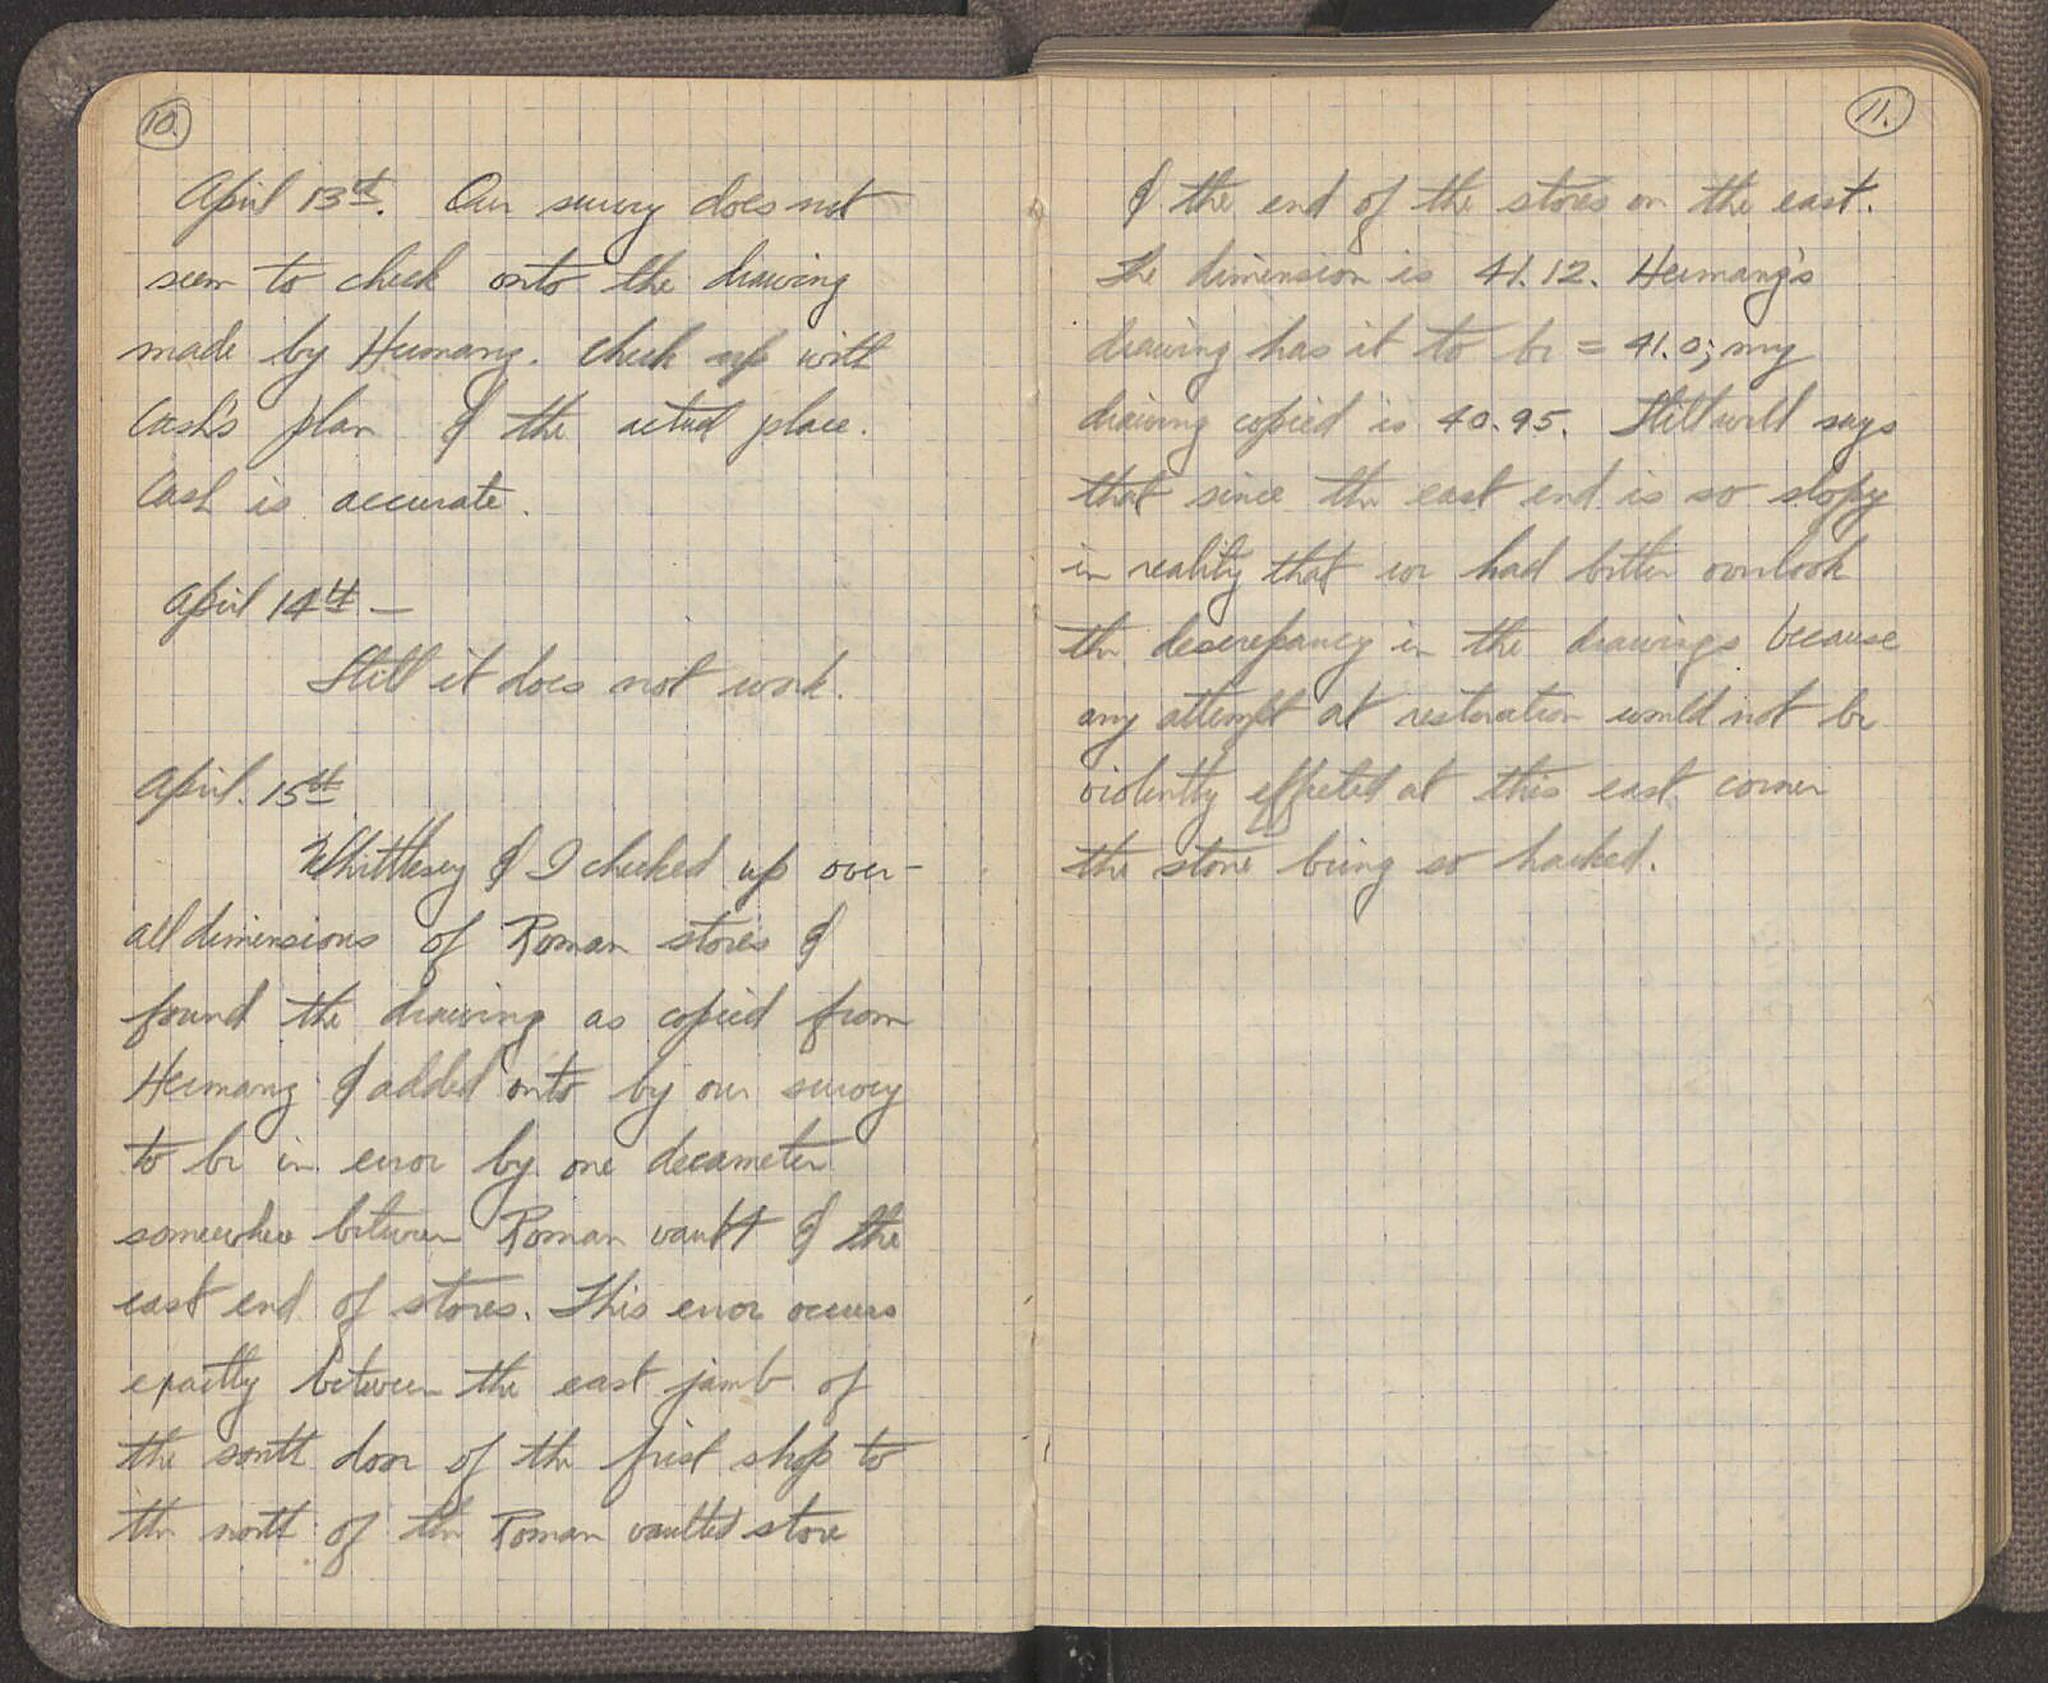 10.
April 13th. Our survey does not
seem to check onto the drawing
made by Heermanz. Check up with
Cash's plan & the actual place.
Cash is accurate.
April 14th —
Still it does not work.
April. 15th
Whittlesey & I checked up over-
all dimensions of Roman stores &
found the drawing as copied from
Heermanz & added onto by our survey
to be in error by one decameter
somewhere between Roman vault & the
east end of stores. This error occurs
exactly between the east jamb of
the south door of the first shop to
the north of the Roman vaulted store
11.
& the end of the stores on the east.
The dimension is 41.12. Heermanz's
drawing has it to be = 41.0; my
drawing copied is 40.95. Stillwell says
that since the east end is so slopy
in reality that we had better overlook
the descrepancy in the drawings because
any attempt at restoration would not be
violently effected at this east corner
the stone being so hacked.